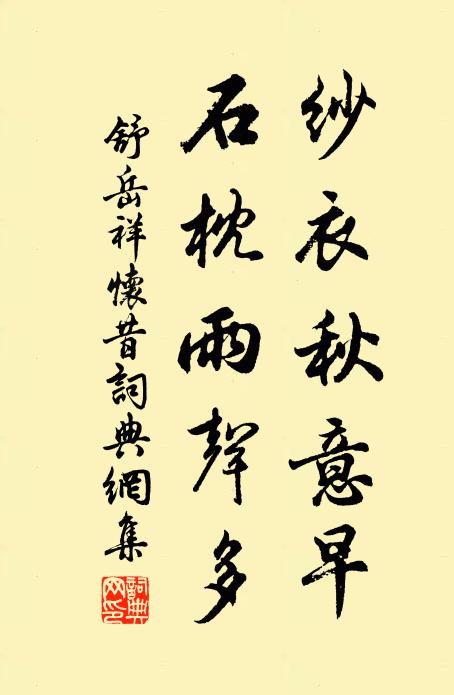 紗衣秋意早
石枕雨聲多
舒岳祥懷昔詞典網集
詞典網印